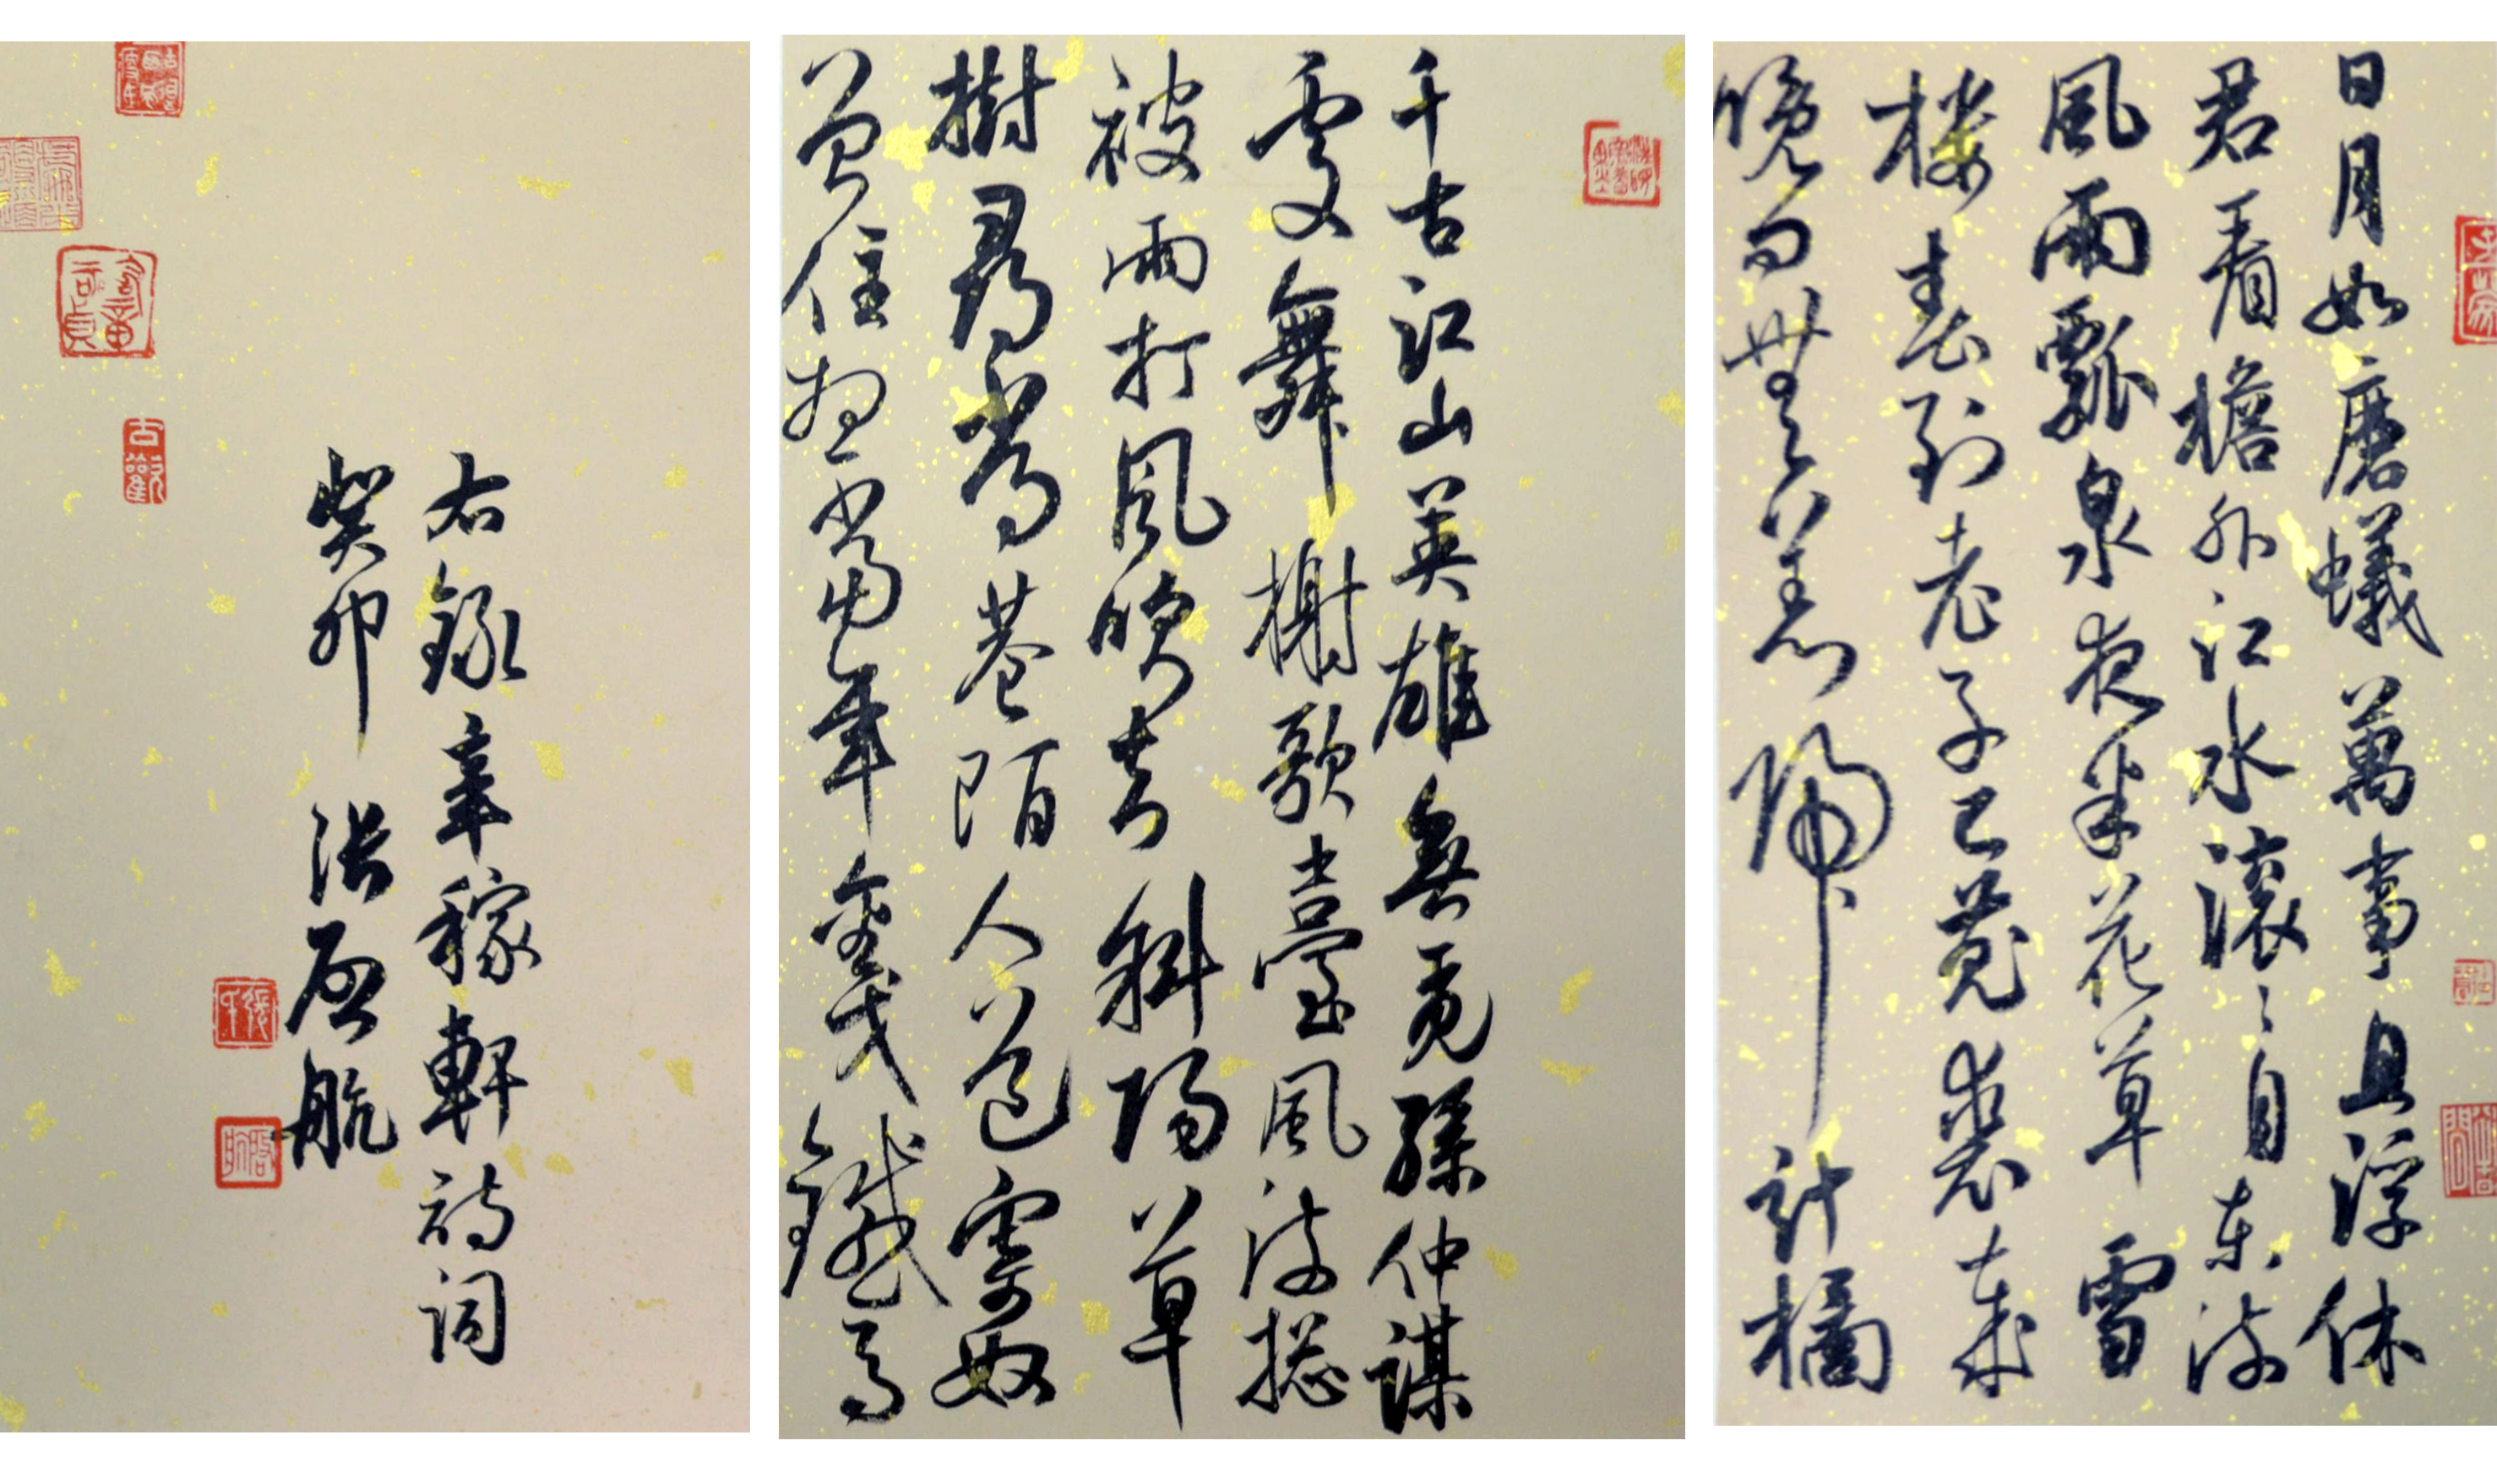 日月如磨蟻萬事且浮休
君看檐外江水滾〻自東流
風雨瓢泉夜半花草雪
樓春到老子已菟裘歲
晚問無恙歸計橘
千古江山英雄無覓孫仲謀
處舞榭歌臺風流總
被雨打風吹去斜陽草
樹尋常巷陌人道寄奴
曾住想當年金戈鐵馬
右録辛稼軒詩詞
癸卯 張啟航
古歡